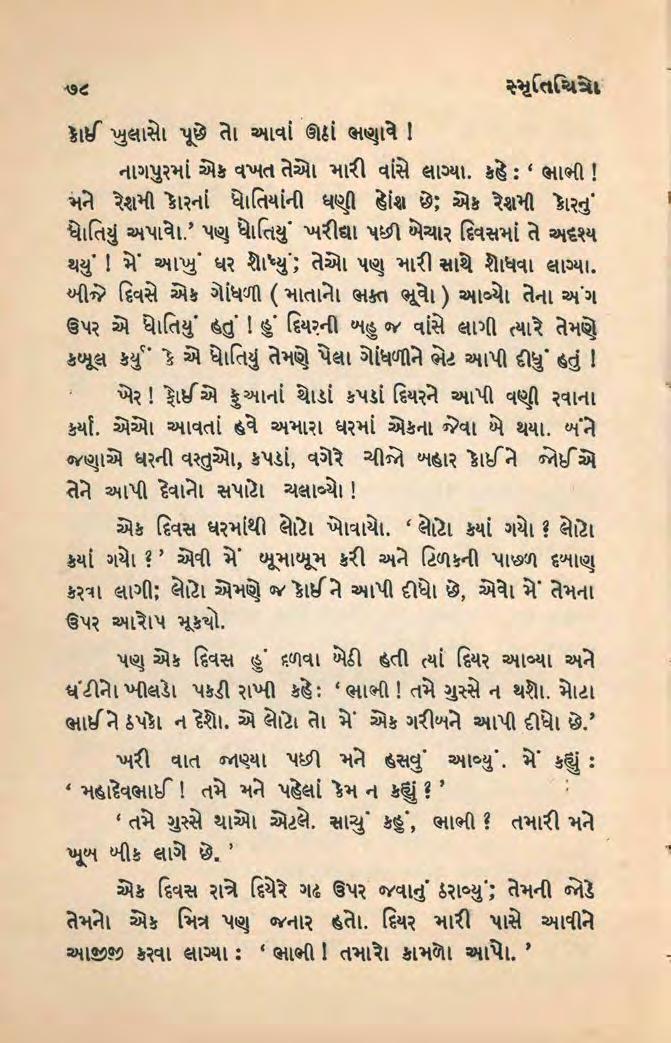 ૭૮ સ્મૃતિચિત્રો
કોઈ ખુલાસો પૂછે તો આવાં ઊઠાં ભણાવે !
નાગપુરમાં એક વખત તેઓ મારી વાંસે લાગ્યા. કહે : ‘ ભાભી !
મને રેશમી કોરનાં ધોતિયાંની ઘણી હોંશ છે; એક રેશમી કોરનું
ધોતિયું અપાવો.’ પણ ધોતિયું ખરીદ્યા પછી બેચાર દિવસમાં તે અદૃશ્ય
થયું ! મેં આખું ઘર શોધ્યું; તેઓ પણ મારી સાથે શોધવા લાગ્યા.
બીજે દિવસે એક ગોંધળી ( માતાનો ભક્ત ભૂવો ) આવ્યો તેના અંગ
ઉપર એ ધોતિયું હતું ! હું દિયરની બહુ જ વાંસે લાગી ત્યારે તેમણે
કબૂલ કર્યું કે એ ધોતિયું તેમણે પેલા ગોંધળીને ભેટ આપી દીધું હતું !
ખેર ! ફોઈએ કુઆનાં થોડાં કપડાં દિયરને આપી વણી રવાના
કર્યાં. એઓ આવતાં હવે અમારા ઘરમાં એકના જેવા બે થયા. બંને
જણાએ ઘરની વસ્તુઓ, કપડાં, વગેરે ચીજો બહાર કોઈને જોઈએ
તેને આપી દેવાનો સપાટો ચલાવ્યો !
એક દિવસ ઘરમાંથી લોટો ખોવાયો. ‘ લોટો ક્યાં ગયો ? લોટો
ક્યાં ગયો ? ’ એવી મેં બૂમાબૂમ કરી અને ટિળકની પાછળ દબાણ
કરવા લાગી; લોટો એમણે જ કોઈને આપી દીધો છે, એવો મેં તેમના
ઉપર આરોપ મૂક્યો.
પણ એક દિવસ હું દળવા બેઠી હતી ત્યાં દિયર આવ્યા અને
ઘંટીનો ખીલડો પકડી રાખી કહે : ‘ ભાભી ! તમે ગુસ્સે ન થશો. મોટા
ભાઈને ઠપકો ન દેશો. એ લોટો તો મેં એક ગરીબને આપી દીધો છે.’
ખરી વાત જાણ્યા પછી મને હસવું આવ્યું. મેં કહ્યું :
‘ મહાદેવભાઈ ! તમે મને પહેલાં કેમ ન કહ્યું ? ’
‘ તમે ગુસ્સે થાઓ એટલે. સાચું કહું, ભાભી ? તમારી મને
ખૂબ બીક લાગે છે. ’
એક દિવસ રાત્રે દિયેરે ગઢ ઉપર જવાનું ઠરાવ્યું; તેમની જોડે
તેમનો એક મિત્ર પણ જનાર હતો. દિયર મારી પાસે આવીને
આજીજી કરવા લાગ્યા : ‘ ભાભી ! તમારો કામળો આપો. ’